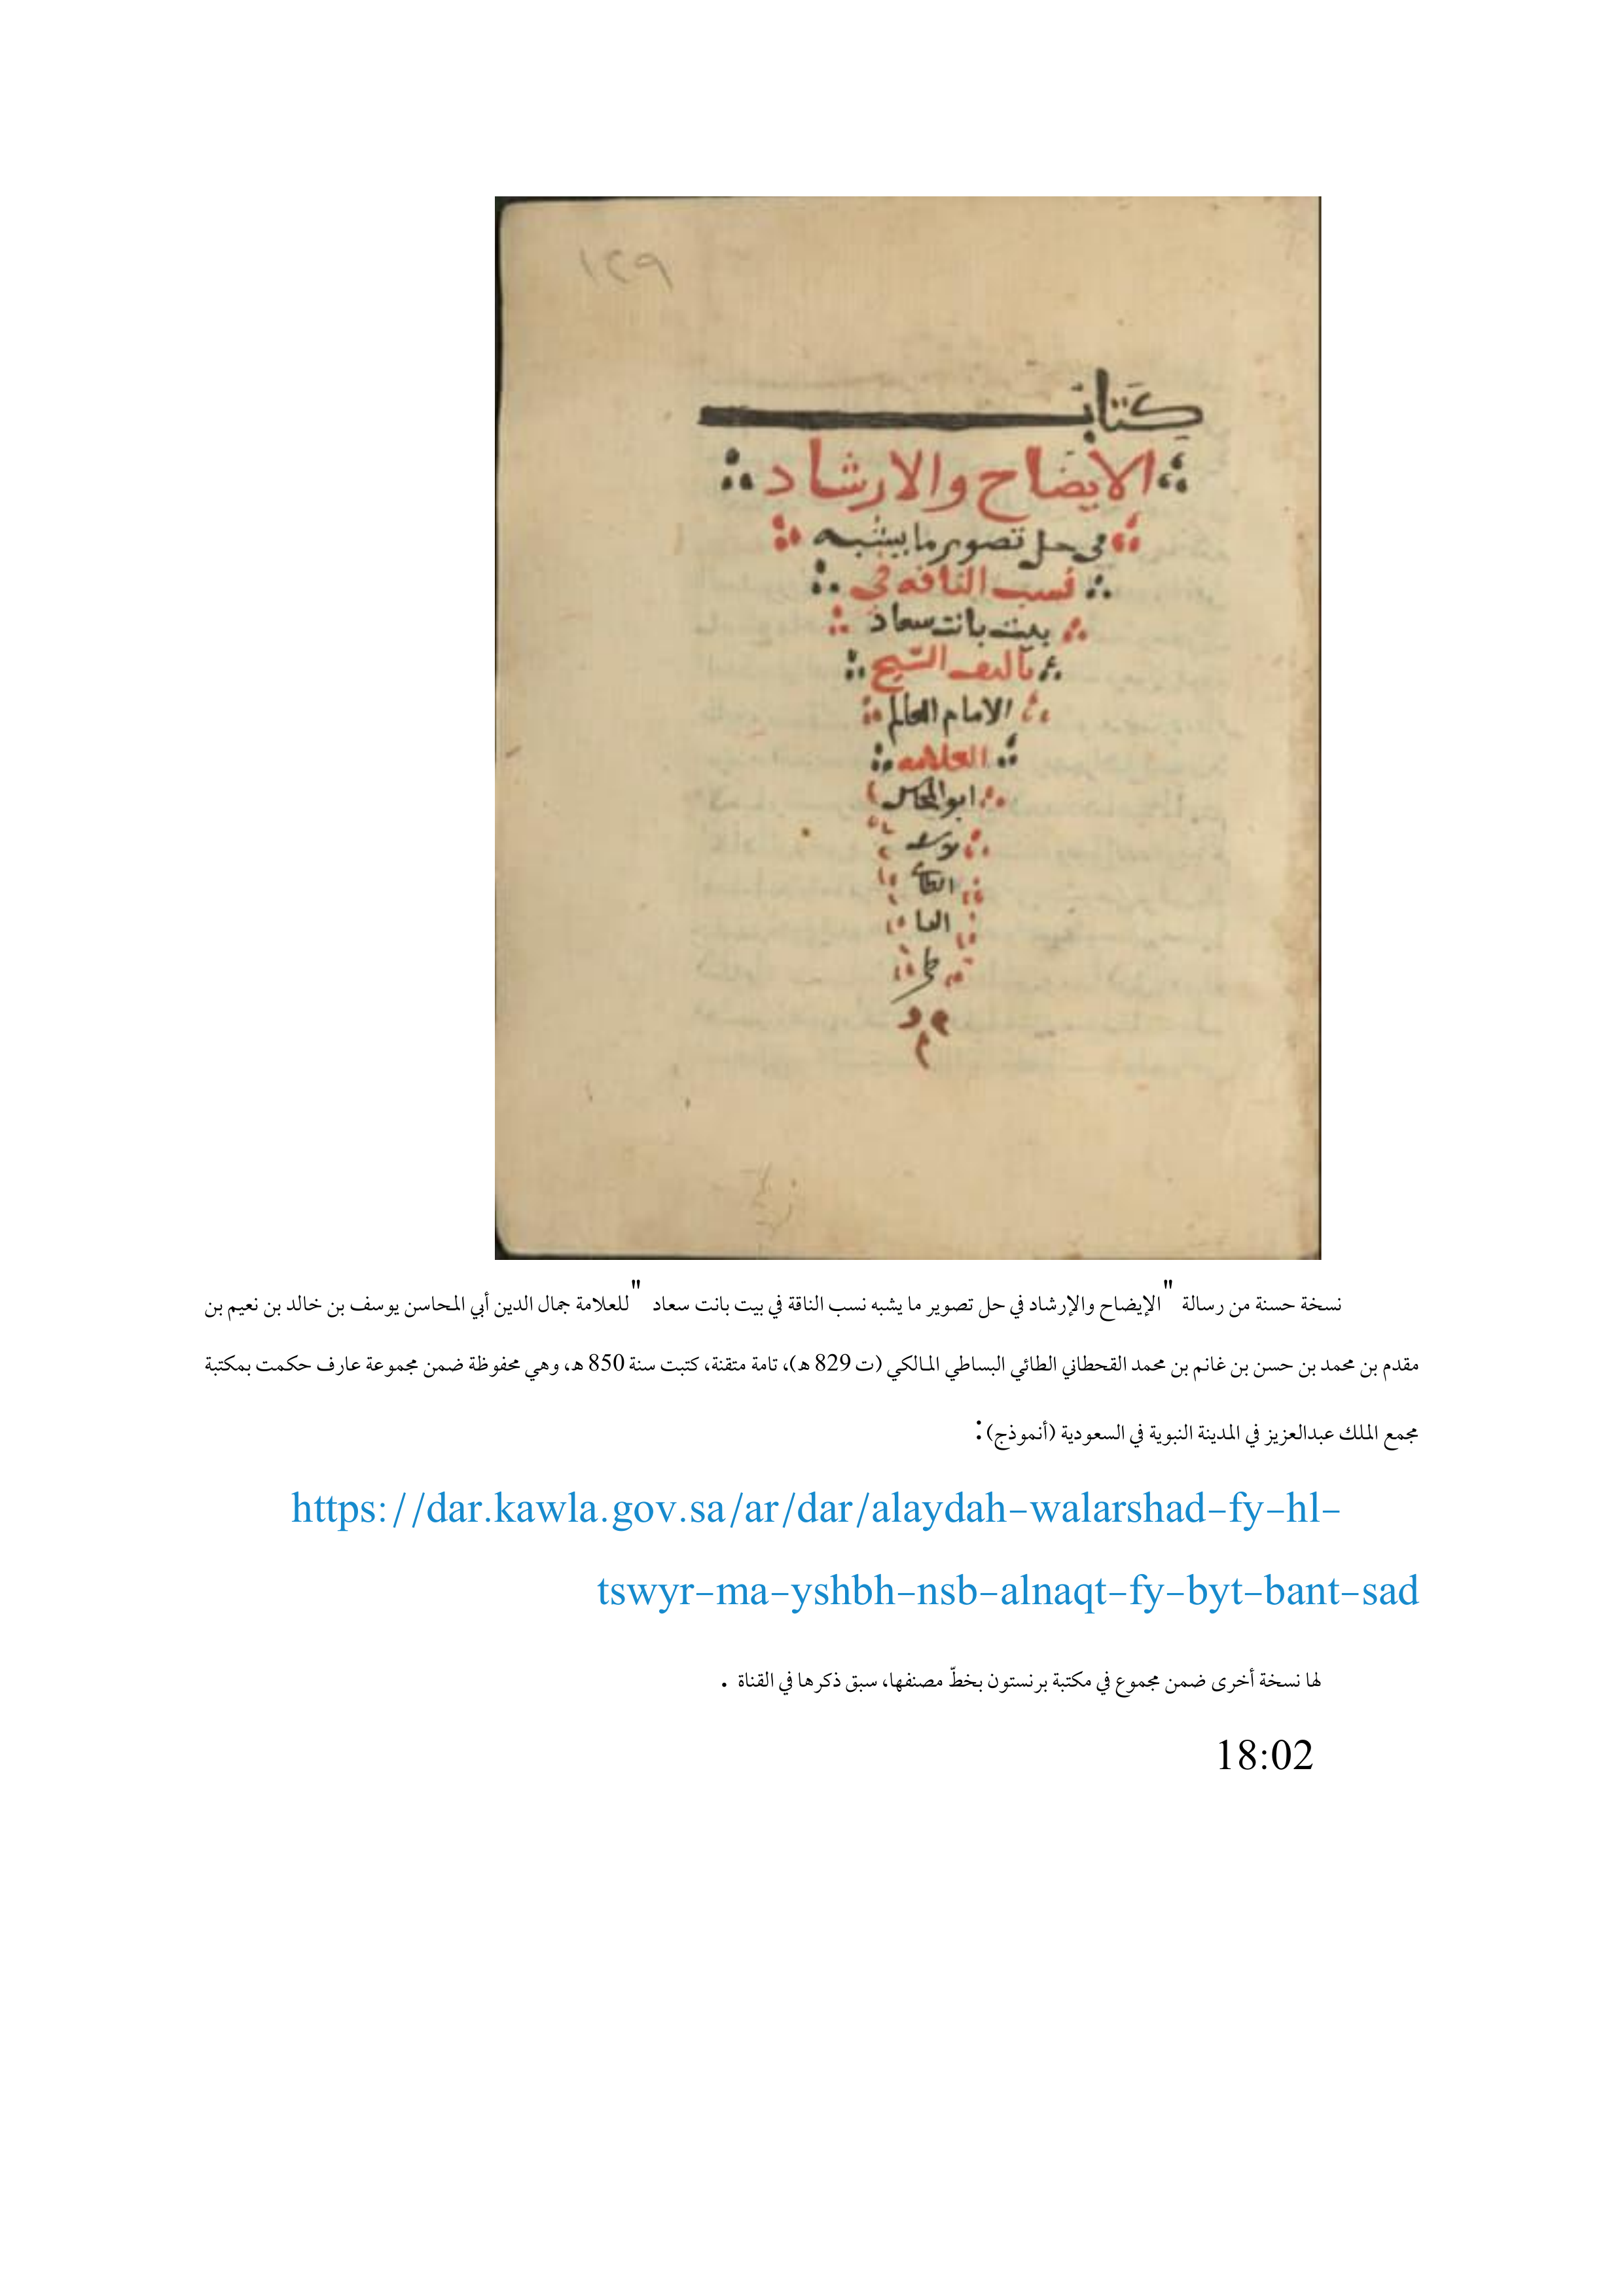 ١٢٩
كتاب
الايضاح والارشاد
في حل تصوير ما يشبه
نسب الناقه في
بيت بانت سعاد
تاليف الشيخ
الامام العالم
العلامه
ابو المحاسن
الطائي
نسخة حسنة من رسالة "الإيضاح والإرشاد في حل تصوير ما يشبه نسب الناقة في بيت بانت سعاد" للعلامة جمال الدين أبي المحاسن يوسف بن خالد بن نعيم بن
مقدم بن محمد بن حسن بن غانم بن محمد القحطاني الطائي البساطي المالكي (ت 829 هـ)، تامة متقنة، كتبت سنة 850 هـ، وهي محفوظة ضمن مجموعة عارف حكمت بمكتبة
مجمع الملك عبدالعزيز في المدينة النبوية في السعودية (أنموذج):
https://dar.kawla.gov.sa/ar/dar/alaydah-walarshad-fy-hl-
tswyr-ma-yshbh-nsb-alnaqt-fy-byt-bant-sad
لها نسخة أخرى ضمن مجموع في مكتبة برنستون بخطّ مصنفها، سبق ذكرها في القناة .
18:02